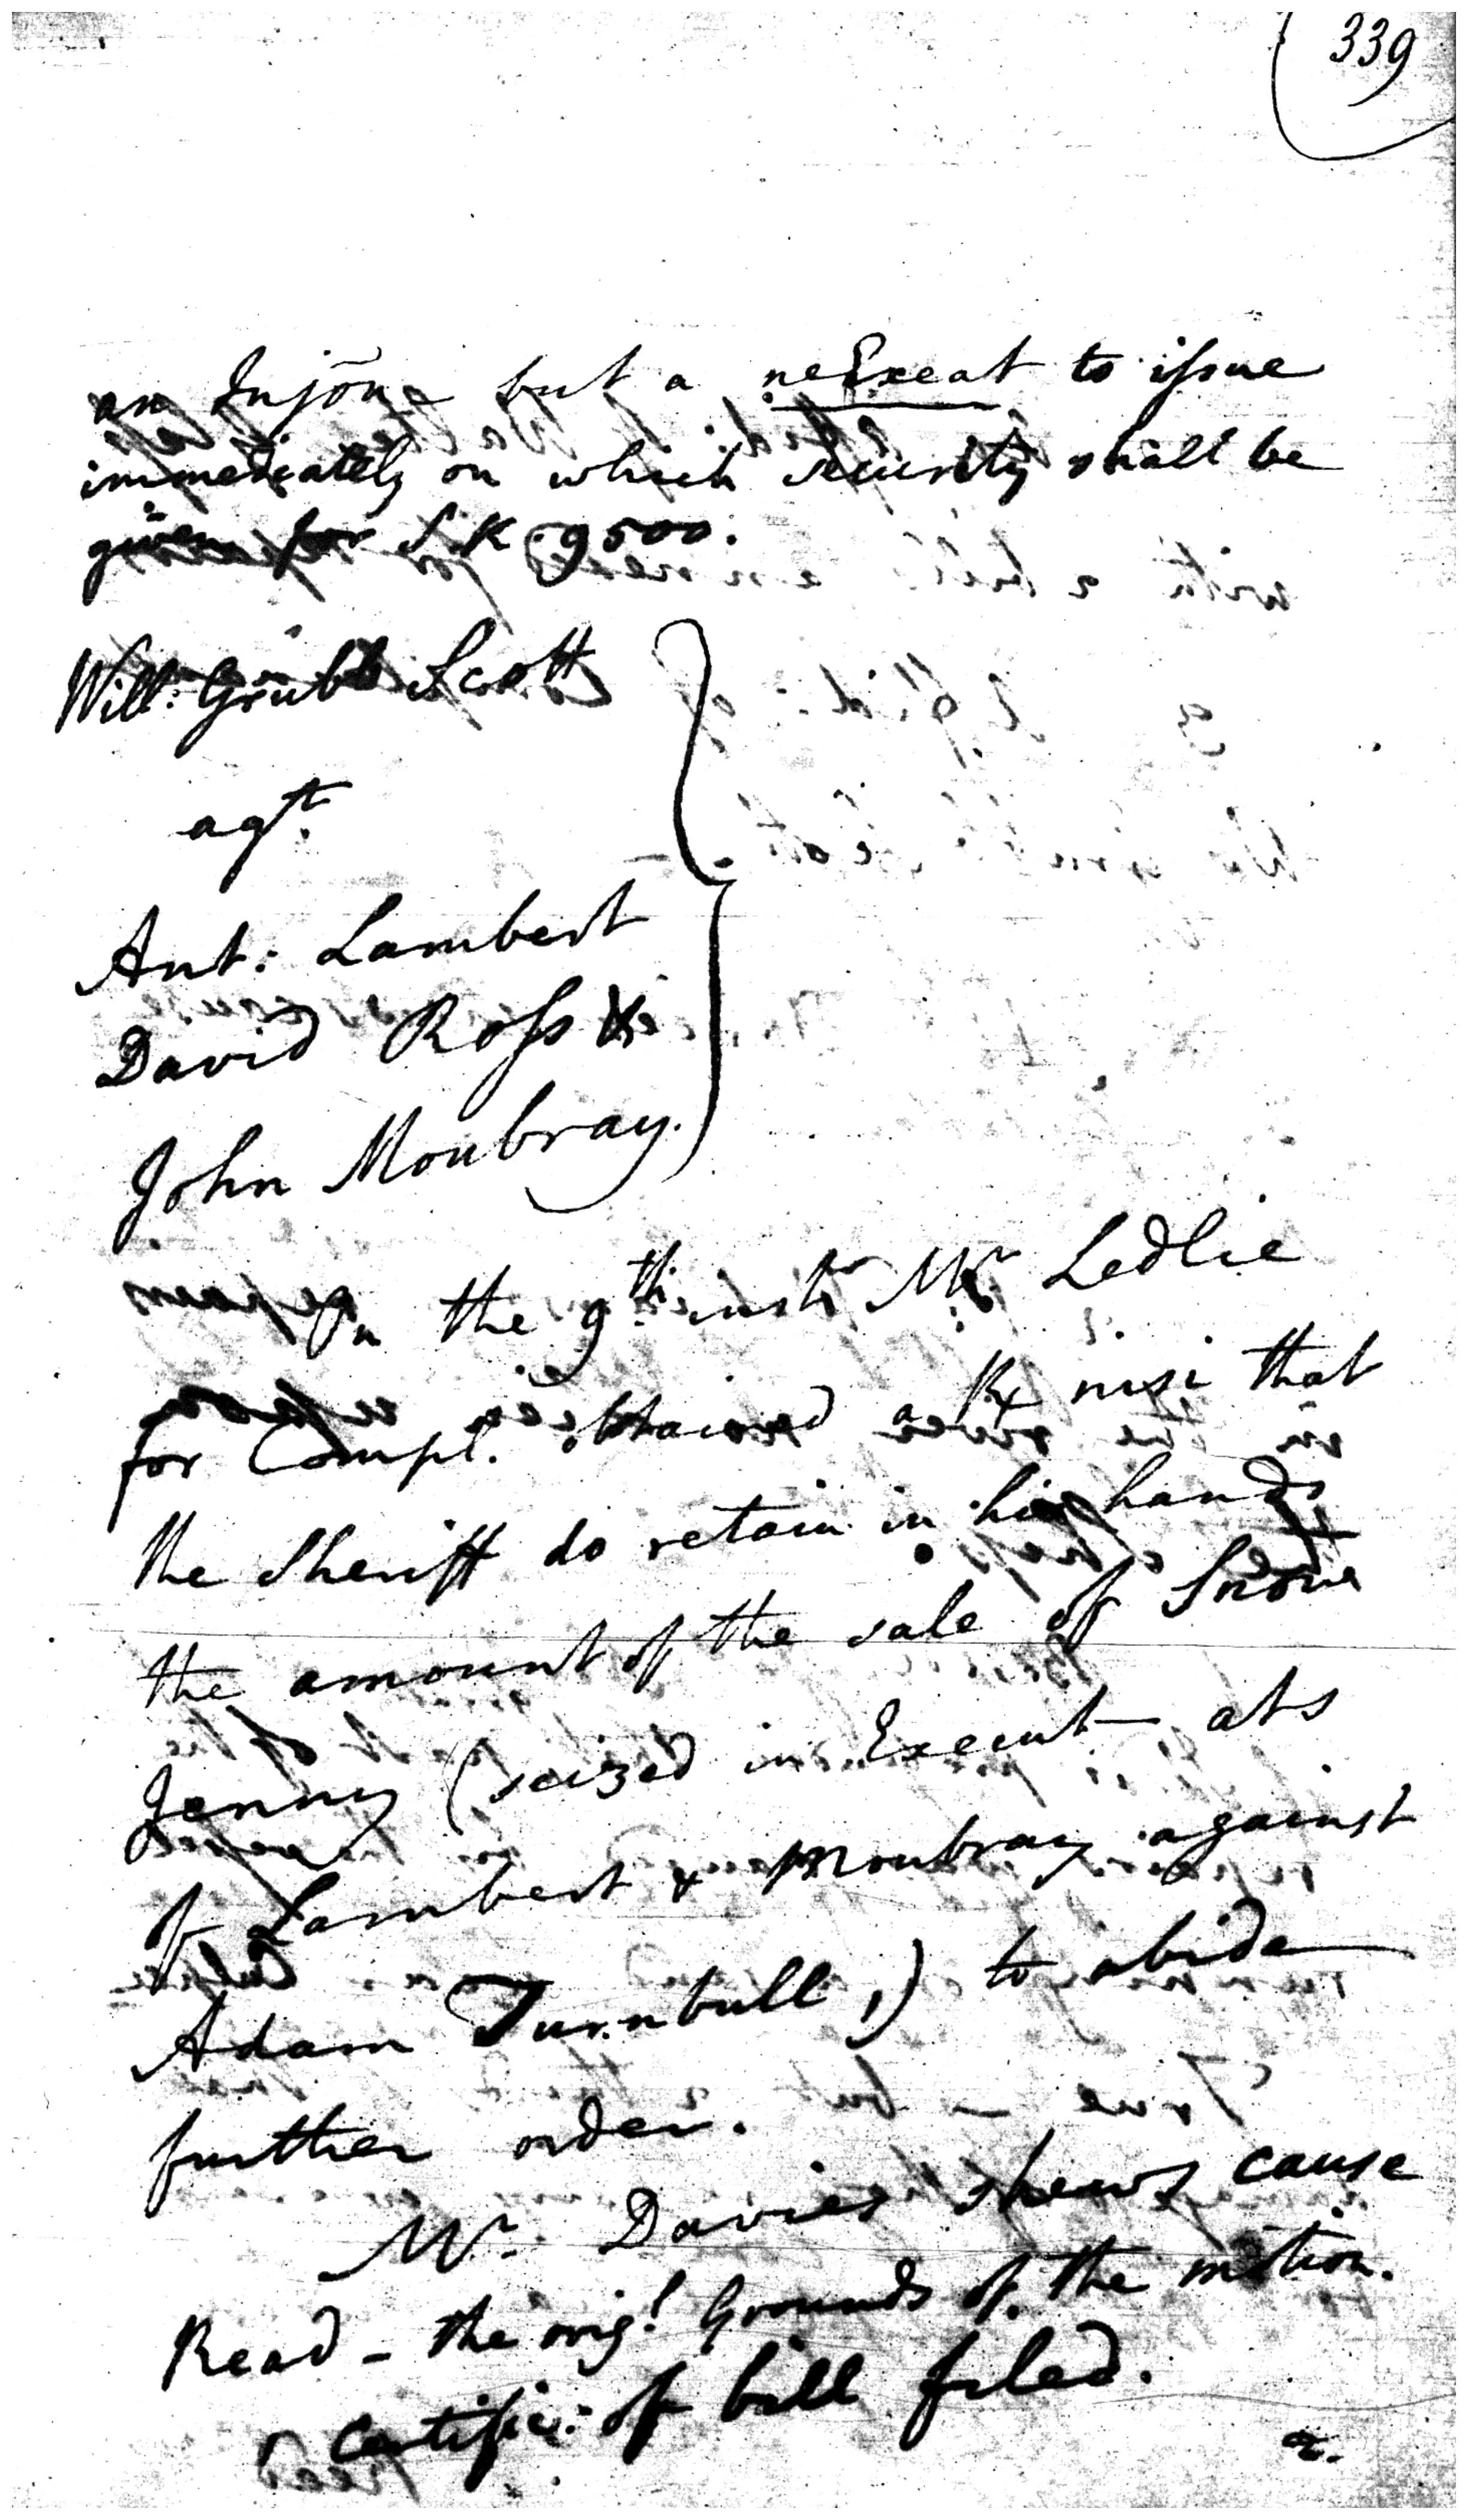 339
an Injōne but a ne Exeat to issue
immediately on which security shall be
given for S.R. 9500.
Will: Grubb Scott
agt.
Ant: Lambert
David Ross &
John Moubray.
On the 9th inst Mr. Ledlie
for Compl. obtained a Rx nisi that
the Sheriff do retain in his hands
the amount of the sale of Snow
Jenny (seized in Execut— ats
of Lambert & Moubray against
Adam Turnbull,) to abide
further order.
Mr. Davies shews cause
Read - the orig! Grounds of the motion.
Certific: of bill filed.